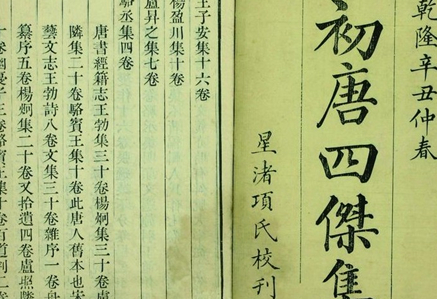 乾隆辛丑仲春
初唐四傑集
星渚項氏校刊
王子安集十六卷
楊盈川集十卷
盧昇之集七卷
駱丞集四卷
唐書經籍志王勃集三十卷楊炯集三十卷盧
隣集二十卷駱賓王集十卷此唐人舊本也宋
藝文志王勃詩八卷文集三十卷雜序一卷舟
纂序五卷楊炯集二十卷又拾遺四卷盧照隣
十卷幽憂子三卷駱賓王集十卷百道判二